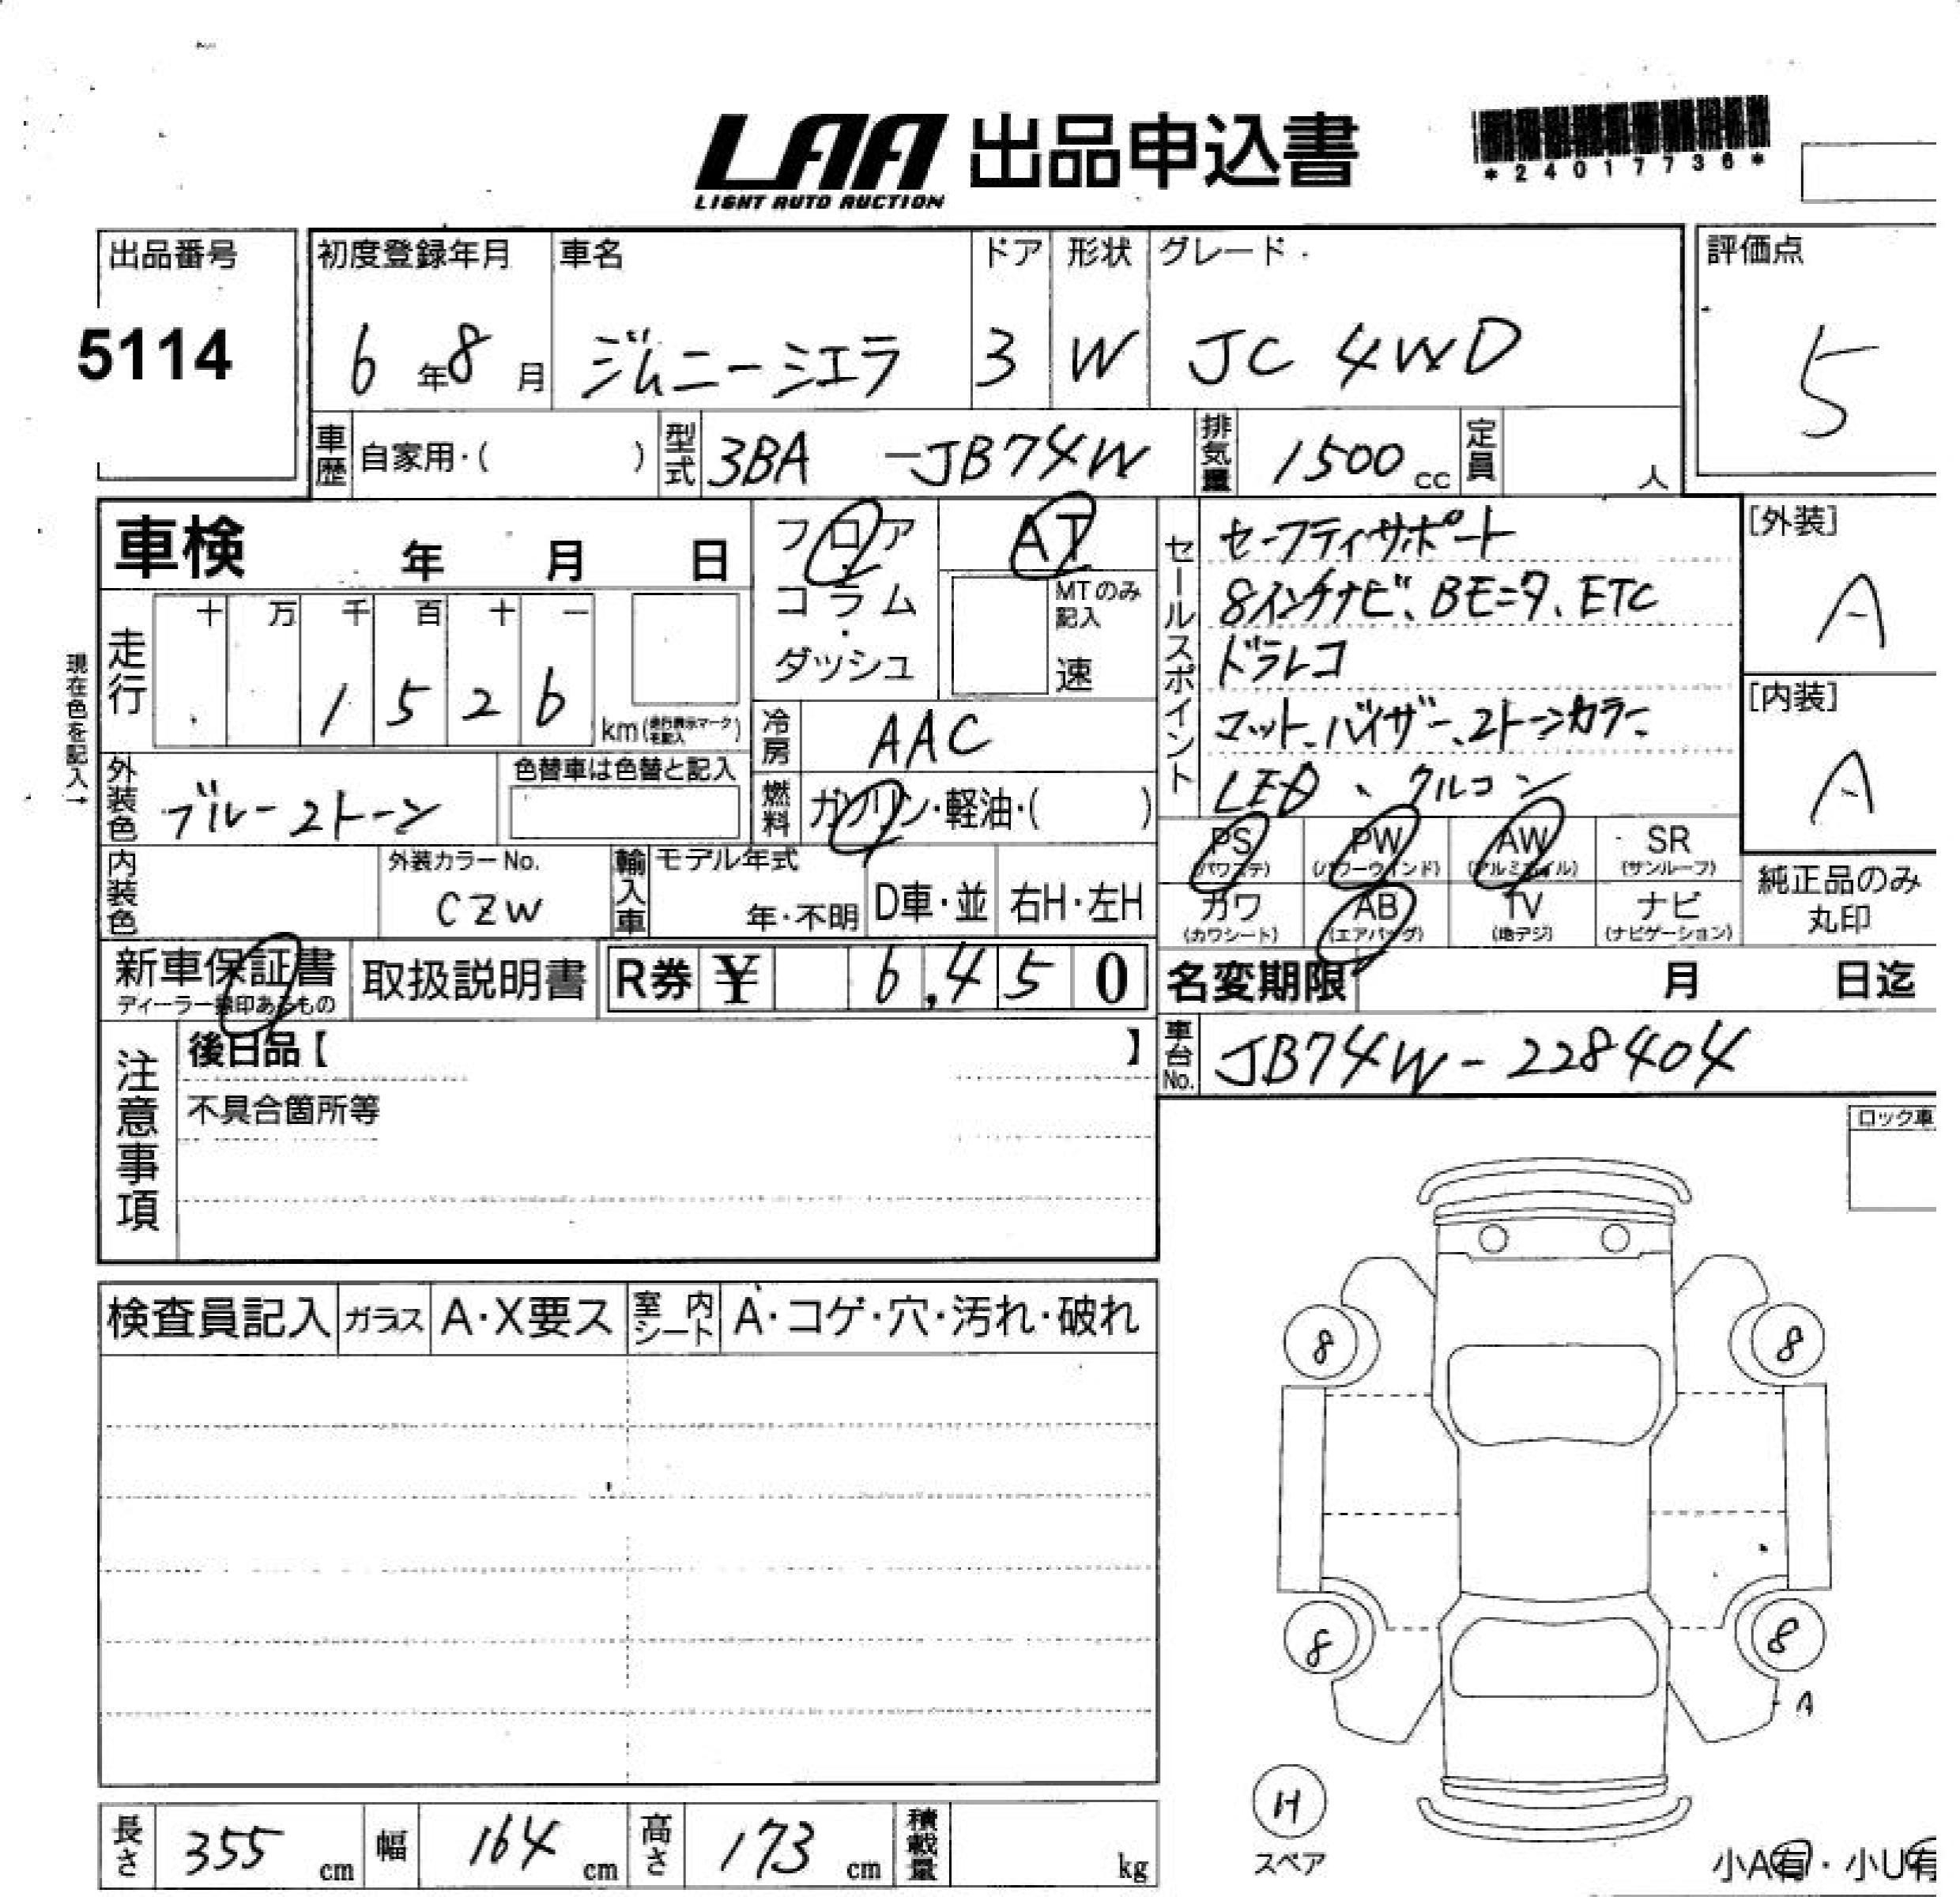 LAA 出品申込書
LIGHT AUTO AUCTION
*24017736*
出品番号
5114
初度登録年月
6年8月
車名
ジムニーシエラ
ドア
3
形状
W
グレード
JC 4WD
評価点
5
車歴 自家用・( )
型式 3BA -JB74W
排気量 1500cc
定員 人
車検 年 月 日
フロア
コラム
・
ダッシュ
AT
MTのみ記入
速
セールスポイント
セーフティサポート
8インチナビ、BEニタ、ETC
ドラレコ
マット、バイザー、2トーンカラー
LED、クルコン
[外装]
A
[内装]
A
現在色を記入→
走行
十 万 千 百 十 一
1 5 2 6 km(走行表示マークを記入)
冷房 AAC
燃料 ガソリン・軽油・( )
外装色 ブルー2トーン
色替車は色替と記入
内装色
外装カラーNo.
CZW
輸入車
モデル年式
年・不明
D車・並
右H・左H
PS
(パワステ)
PW
(パワーウィンド)
AW
(アルミホイル)
SR
(サンルーフ)
カワ
(カワシート)
AB
(エアバッグ)
TV
(地デジ)
ナビ
(ナビゲーション)
純正品のみ
丸印
新車保証書
ディーラー捺印あるもの
取扱説明書
R券 ¥ 6,450
名変期限 月 日迄
車台No. JB74W-228404
注意事項
後日品【 】
不具合箇所等
ロック車
検査員記入
ガラス
A・X要ス
室内シート
A・コゲ・穴・汚れ・破れ
8
8
8
8
A
H
スペア
長さ 355 cm
幅 164 cm
高さ 173 cm
積載量 kg
小A有・小U有